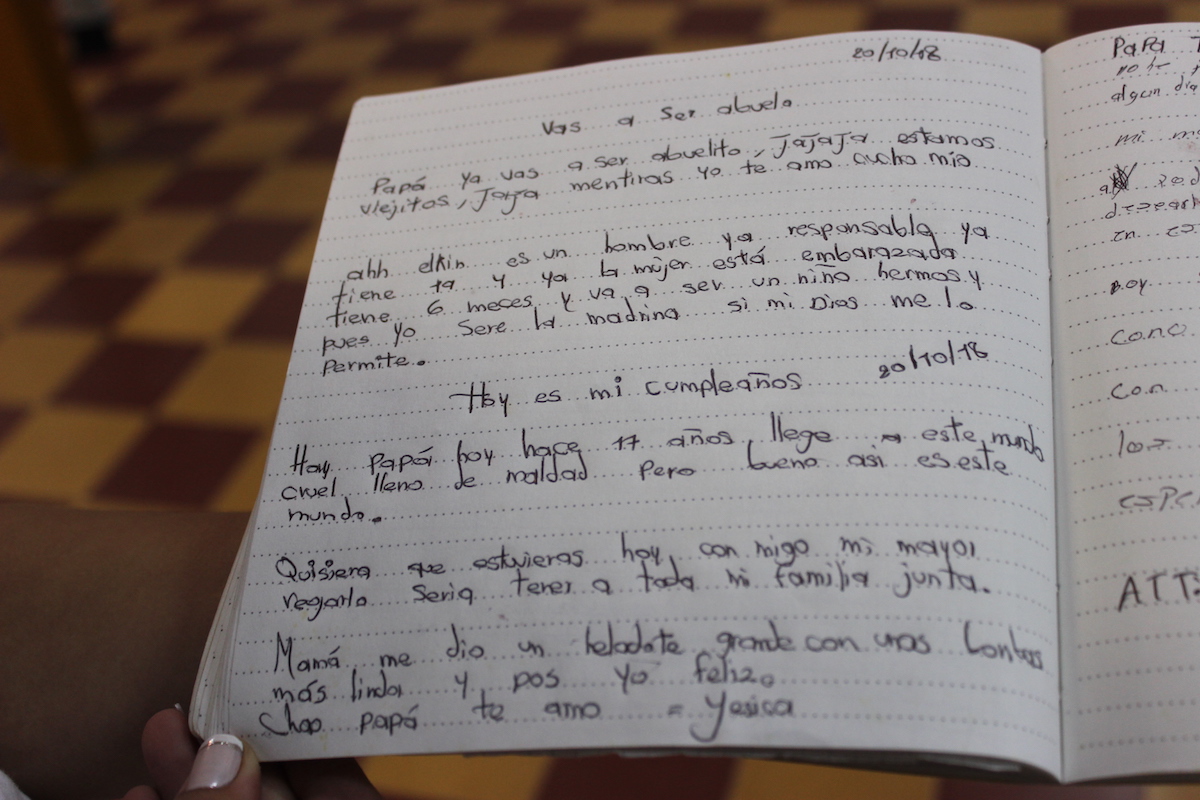 20/10/18
Vas a ser abuelo
Papá ya vas a ser abuelito, JaJaJa estamos
viejitos, Jaja mentiras yo te amo cucho mio
ahh elkin es un hombre ya responsable ya
tiene 19 y ya la mujer está embarazada
tiene 6 meces y va a ser un niño hermoso y
pues yo Sere la madrina si mi Dios me lo
permite.
Hoy es mi cumpleaños 20/10/18
Hoy Papá hoy hace 17 años llege a este mundo
cruel lleno de maldad Pero bueno asi es este
mundo.
Quisiera que estuvieras hoy con migo mi mayor
regarlo Seria tener a toda mi familia junta.
Mamá me dio un heladote grande con unas bombas
más linda y pos yo feliz.
Chao papá te amo = Yesica
PaPa
no te
algun dia
mi
en
Boy
con
los
ATT: